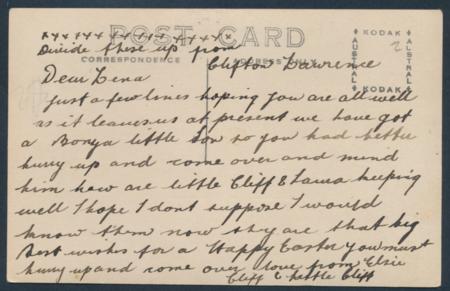 x x x x x x x x x x x x x
POST CARD
Divide these up from
CORRESPONDENCE
ADDRESS ONLY
Clifton Lawrence
KODAK
AUSTRAL
ALSTRAL
KODAK
2
Dear Lena
Just a few lines hoping you are all well
as it leaves us at present we have got
a Bonza little Son so you had better
hurry up and come over and mind
him how are little Cliff & Laura keeping
well I hope I dont suppose I would
know them now they are that big
Best wishes for a Happy Easter you must
hurry up and come over love from Elsie
Cliff & little Cliff